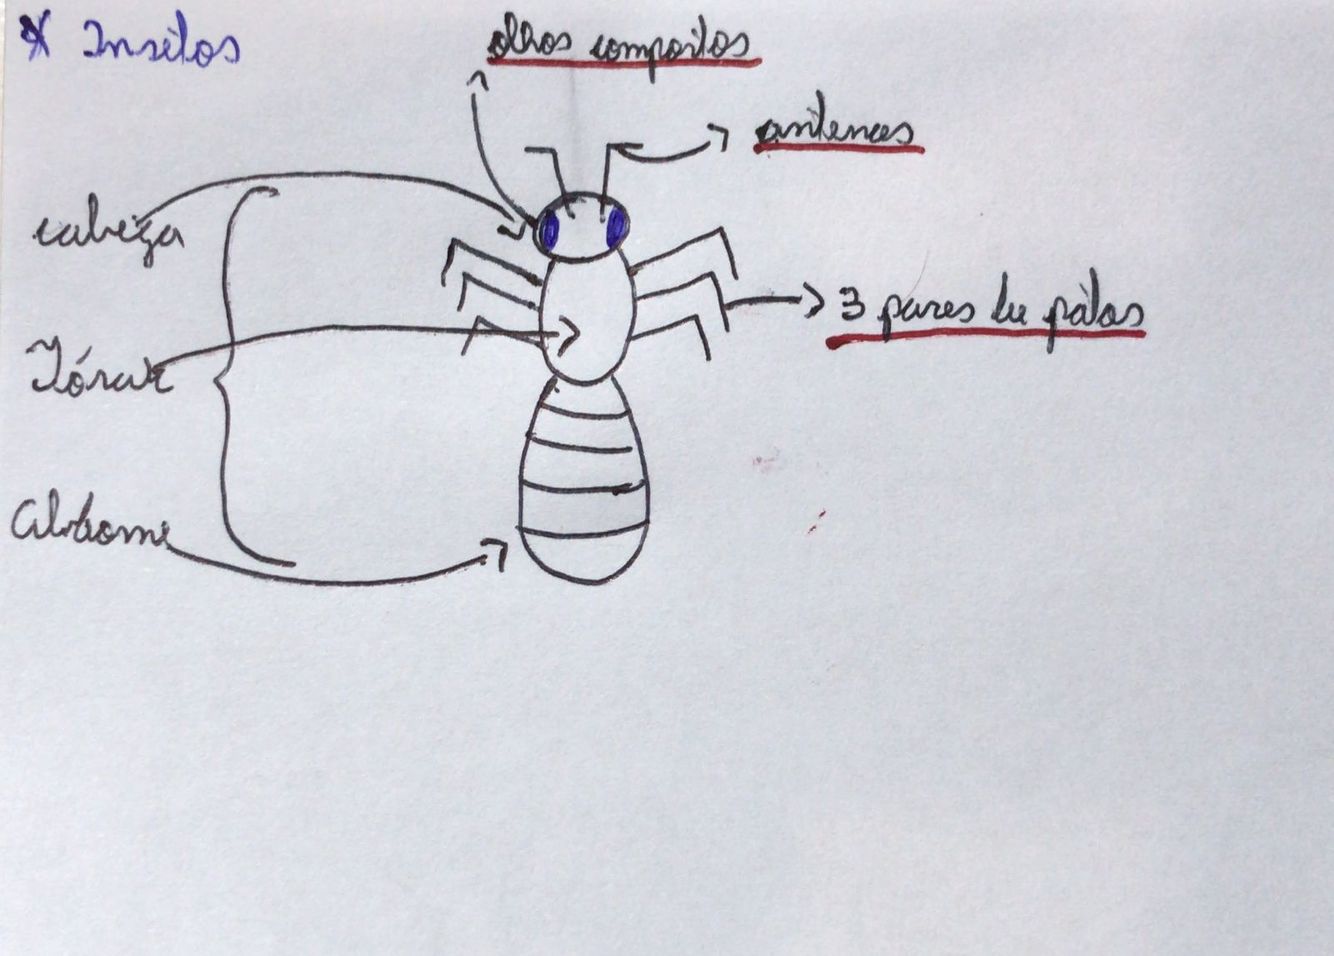 * Insetos
olhos compostos
antenas
cabeça
3 pares de patas
Tórax
Abdome